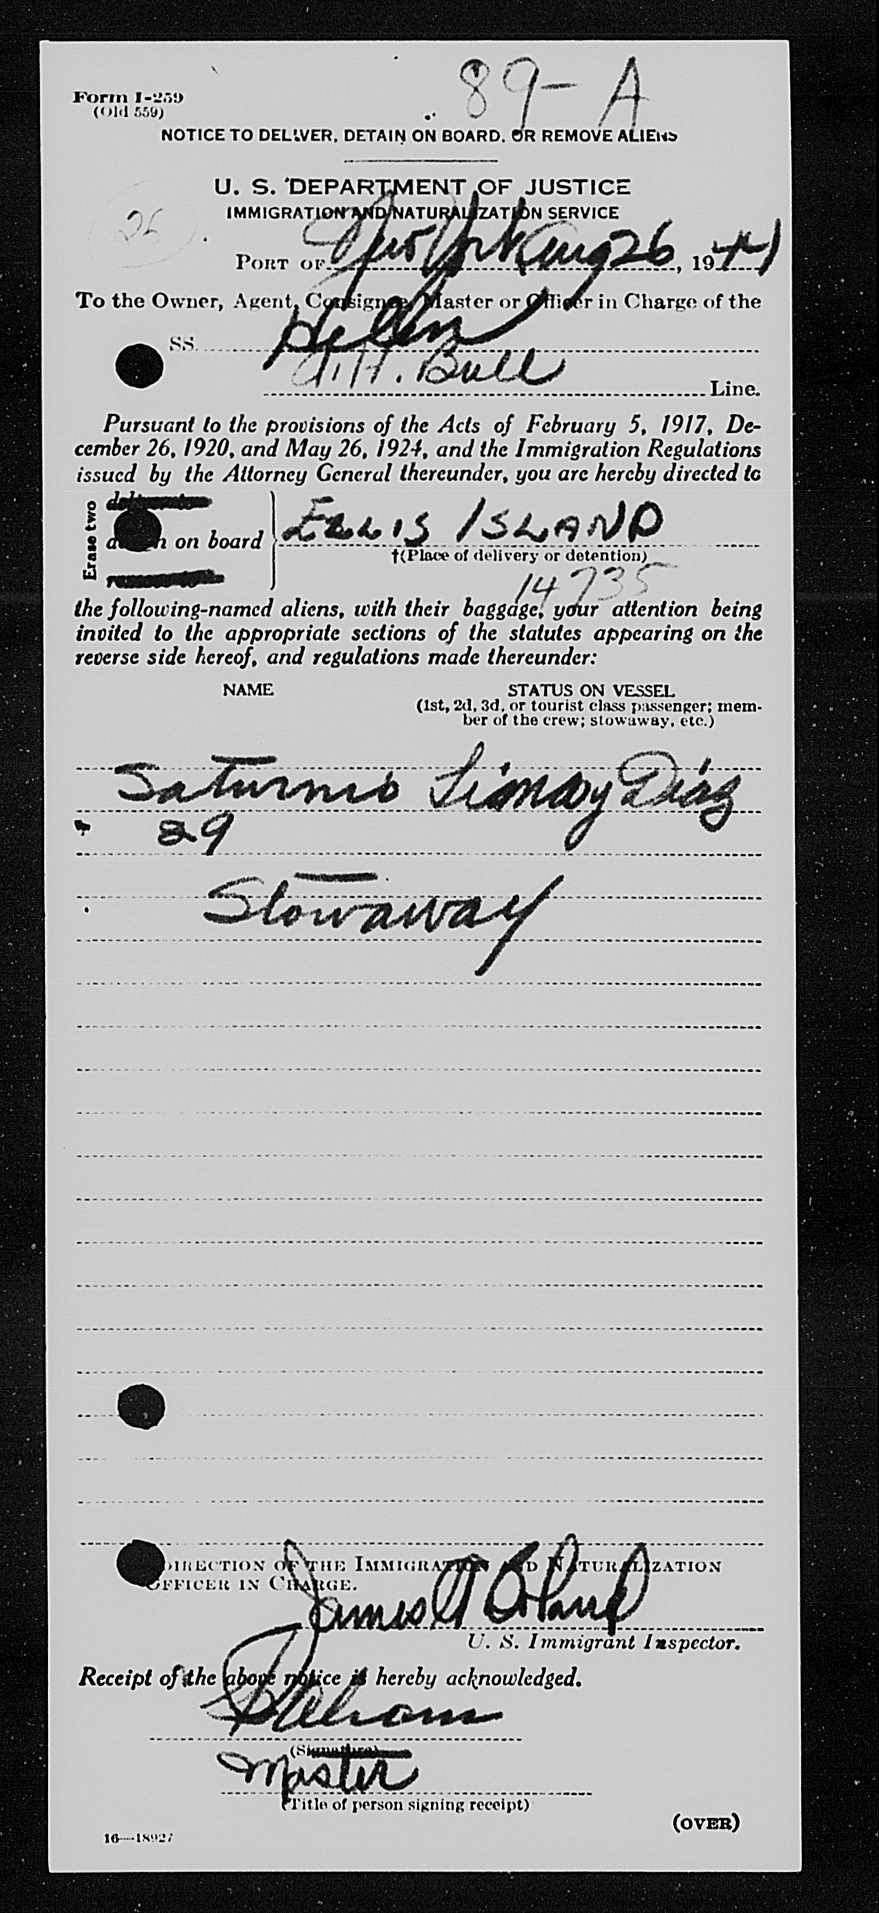 89-A
Form I-259
(Old 559)
NOTICE TO DELIVER, DETAIN ON BOARD, OR REMOVE ALIENS
U. S. DEPARTMENT OF JUSTICE
IMMIGRATION AND NATURALIZATION SERVICE
26
PORT OF New York Aug 26, 1941
To the Owner, Agent, Consignee, Master or Officer in Charge of the
SS Helen
A. H. Bull Line.
Pursuant to the provisions of the Acts of February 5, 1917, De-
cember 26, 1920, and May 26, 1924, and the Immigration Regulations
issued by the Attorney General thereunder, you are hereby directed to
Erase two
on board
ELLIS ISLAND
†(Place of delivery or detention)
14735
the following-named aliens, with their baggage, your attention being
invited to the appropriate sections of the statutes appearing on the
reverse side hereof, and regulations made thereunder:
NAME STATUS ON VESSEL
(1st, 2d, 3d, or tourist class passenger; mem-
ber of the crew; stowaway, etc.)
Saturnio Diaz
29
Stowaway
DIRECTION OF THE IMMIGRATION AND NATURALIZATION
OFFICER IN CHARGE.
James Boland
U. S. Immigrant Inspector.
Receipt of the above notice is hereby acknowledged.
(Signature)
Master
(Title of person signing receipt)
(OVER)
16—18927